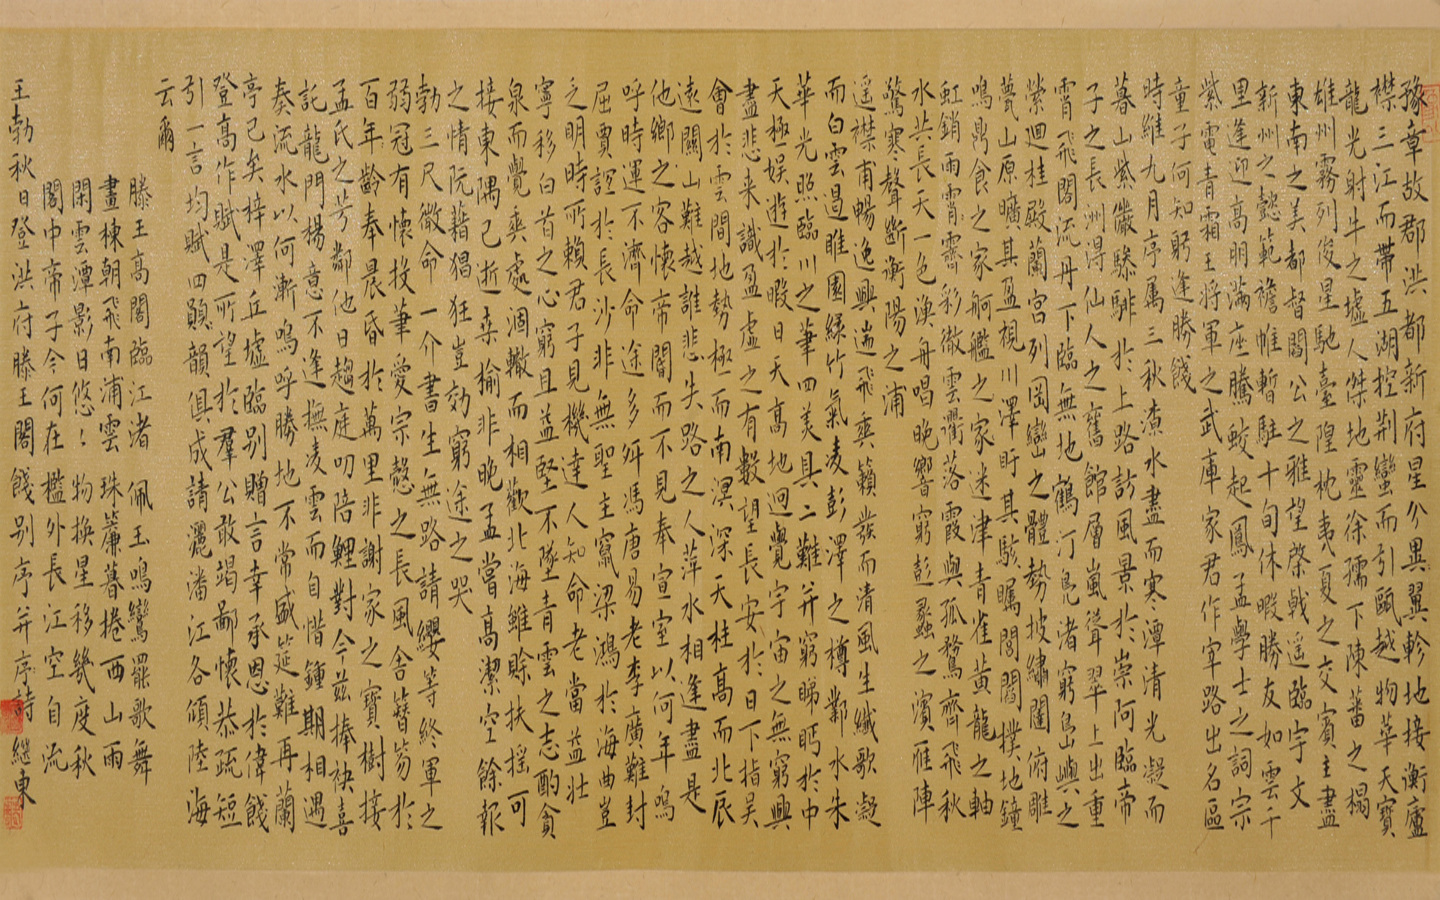 豫章故郡洪都新府星分異翼軫地接衡廬
襟三江而帶五湖控荆蠻而引甌越物華天寶
龍光射牛之墟人傑地靈徐孺下陳蕃之榻
雄州霧列俊星馳臺隍枕夷夏之交賓主盡
東南之美都督閻公之雅望棨戟遥臨宇文
新州之懿範襜帷暫駐十旬休暇勝友如雲千
里逢迎高明滿座騰蛟起鳳孟學士之詞宗
紫電青霜王将軍之武庫家君作宰路出名區
童子何知躬逢勝餞
時維九月序屬三秋潦水盡而寒潭清光凝而
暮山紫儼驂騑於上路訪風景於崇阿臨帝
子之長洲得仙人之舊館層嵐聳翠上出重
霄飛閣流丹下臨無地鶴汀鳧渚窮島嶼之
縈迴桂殿蘭宫列岡巒之體勢披繡闥俯雕
甍山原曠其盈視川澤盱其駭矚閭閻撲地鐘
鳴鼎食之家舸艦之家迷津青雀黄龍之軸
虹銷雨霽彩徹雲衢落霞與孤鶩齊飛秋
水共長天一色漁舟唱晚響窮彭蠡之濱雁陣
驚寒聲斷衡陽之浦
遥襟甫暢逸興遄飛爽籟發而清風生纖歌凝
而白雲遏睢園緑竹氣凌彭澤之樽鄴水朱
華光照臨川之筆四美具二難并窮睇眄於中
天極娱遊於暇日天高地迥覺宇宙之無窮興
盡悲来識盈虚之有數望長安於日下指吴
會於雲間地勢極而南溟深天柱高而北辰
遠關山難越誰悲失路之人萍水相逢盡是
他鄉之容懷帝閽而不見奉宣室以何年嗚
呼時運不濟命途多舛馮唐易老李廣難封
屈賈誼於長沙非無聖主竄梁鴻於海曲豈
乏明時所賴君子見機達人知命老當益壯
寧移白首之心窮且益堅不墜青雲之志酌貪
泉而覺爽處涸轍而相歡北海雖賒扶摇可
接東隅已逝桑榆非晚孟嘗高潔空餘報
之情阮藉猖狂豈効窮途之哭
勃三尺微命一介書生無路請纓等終軍之
弱冠有懷投筆愛宗慤之長風舍簪笏於
百年齡奉晨昏於萬里非謝家之寶樹接
孟氏之芳鄰他日趨庭叨陪鯉對今兹捧袂喜
託龍門楊意不逢撫凌雲而自惜鍾期相遇
奏流水以何漸嗚呼勝地不常盛筵難再蘭
亭已矣梓澤丘墟臨别贈言幸承恩於偉餞
登高作賦是所望於羣公敢竭鄙懷恭疏短
引一言均賦四韻俱成請灑潘江各傾陸海
云爾
滕王高閣臨江渚佩玉鳴鸞罷歌舞
畫棟朝飛南浦雲珠簾暮捲西山雨
閑雲潭影日悠〻物换星移幾度秋
閣中帝子今何在檻外長江空自流
王勃秋日登洪府滕王閣餞别序并序詩 继東